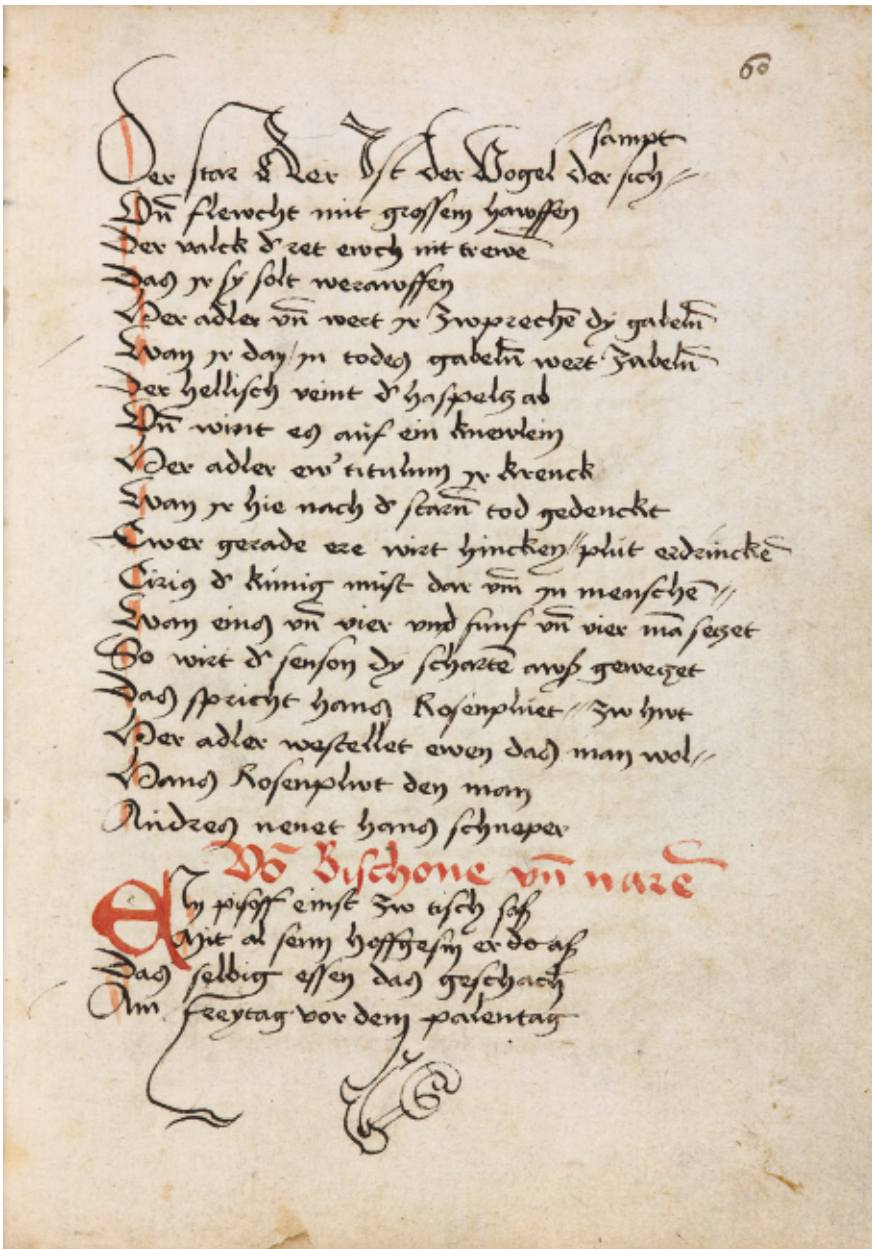 60
sampt
Der star d̕ ler Ist der Vogel der sich //
Vn̄ flewcht mit grossem hawffen
Der valck d̕ ret ewch nit trewē
Das yr sy solt werawffen
Her adler vn̄ wert yr zwprechē dy gabeln̄
Wan yr dan in todes gabeln̄ wert zabeln̄
Der hellisch veint d̕ haspelz ab
Vn̄ wint es auf ein knewlein
Her adler ew' titulum yr krenck
Wan yr hie nach d̕ starn̄ tod gedenckt
Ewer gerade ere wirt hincken // plut erdrinckē
Cirus d̕ kunig must dar vm̄ in menschē //
Wan eins vn̄ vier vnd funf vn̄ vier mā seczet
So wirt d̕ senson dy schartē awß geweczet
Das spricht hans Rosenpluet // zw hwt
Her adler westellet ewen das man wol //
Hans Rosenplwt den man
Andres nenet hans schneper
Vō Bischone vn̄ narē
EIn pisoff einst zw tisch saß
Mit al seim hoffgesin er do aß
Das selbig essen das geschach
Am freytag vor dem palentag